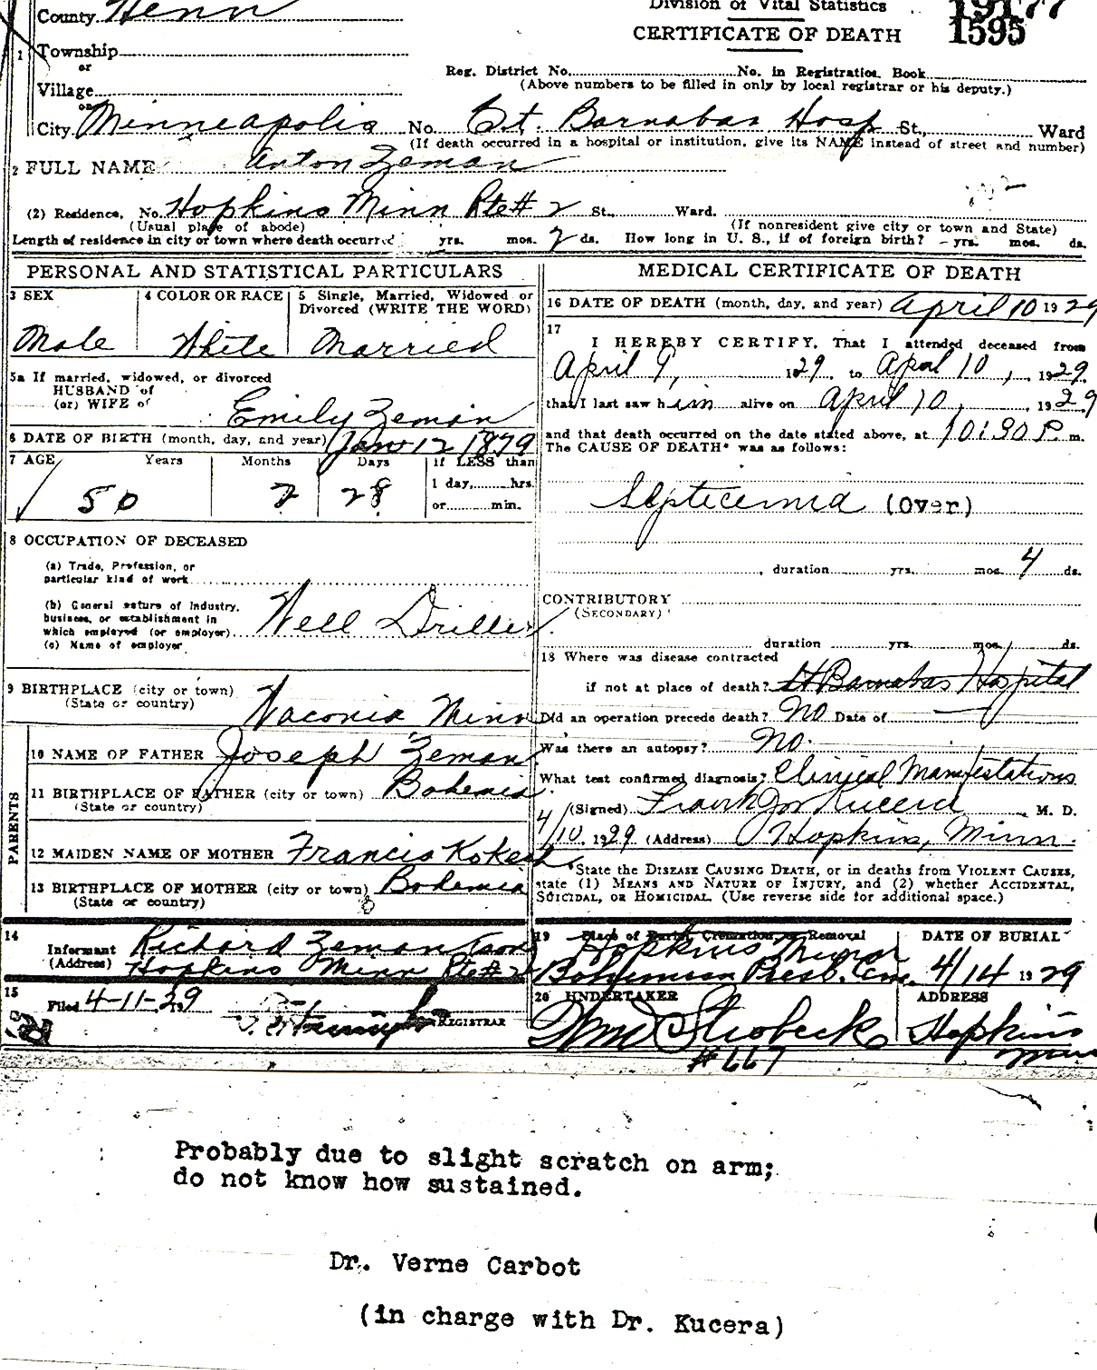 County Henn
Division of Vital Statistics
CERTIFICATE OF DEATH
19177
1595
1 Township
or
Village
or
Reg. District No. No. in Registration Book
(Above numbers to be filled in only by local registrar or his deputy.)
City Minneapolis No. St. Barnabas Hosp St., Ward
(If death occurred in a hospital or institution, give its NAME instead of street and number)
2 FULL NAME Anton Zeman
(2) Residence, No. Hopkins Minn Rte # 2 St., Ward.
(Usual place of abode) (If nonresident give city or town and State)
Length of residence in city or town where death occurred yrs. mos. 2 ds. How long in U. S., if of foreign birth? – yrs. mos. ds.
PERSONAL AND STATISTICAL PARTICULARS
3 SEX 4 COLOR OR RACE 5 Single, Married, Widowed or
Divorced (WRITE THE WORD)
Male White Married
5a If married, widowed, or divorced
HUSBAND of
(or) WIFE of
Emily Zeman
6 DATE OF BIRTH (month, day, and year) Jan 12 1879
7 AGE Years Months Days If LESS than
1 day, hrs.
or min.
50 2 28
8 OCCUPATION OF DECEASED
(a) Trade, Profession, or
particular kind of work
(b) General nature of Industry,
business, or establishment in
which employed (or employer) Well Driller
(c) Name of employer
9 BIRTHPLACE (city or town)
(State or country) Waconia Minn
PARENTS
10 NAME OF FATHER Joseph Zeman
11 BIRTHPLACE OF FATHER (city or town) Bohemia
(State or country)
12 MAIDEN NAME OF MOTHER Francis Kokesh
13 BIRTHPLACE OF MOTHER (city or town) Bohemia
(State or country)
14
Informant Richard Zeman (son
(Address) Hopkins Minn Rte # 2
15
Filed 4-11-29 19
REGISTRAR
MEDICAL CERTIFICATE OF DEATH
16 DATE OF DEATH (month, day, and year) April 10 1929
17
I HEREBY CERTIFY, That I attended deceased from
April 9, 1929 to April 10, 1929
that I last saw him alive on April 10, 1929
and that death occurred on the date stated above, at 10:30 P. m.
The CAUSE OF DEATH* was as follows:
Septicemia (over)
, duration yrs. mos. 4 ds.
CONTRIBUTORY
(SECONDARY)
duration yrs. mos. ds.
18 Where was disease contracted
if not at place of death? St Barnabas Hospital
Did an operation precede death? No Date of
Was there an autopsy? No.
What test confirmed diagnosis? Clinical Manifestations
(Signed) Frank Jos Kucera, M. D.
4/10, 1929 (Address) Hopkins, Minn.
*State the DISEASE CAUSING DEATH, or in deaths from VIOLENT CAUSES,
state (1) MEANS AND NATURE OF INJURY, and (2) whether ACCIDENTAL,
SUICIDAL, OR HOMICIDAL. (Use reverse side for additional space.)
19 Place of Burial, Cremation or Removal DATE OF BURIAL
Hopkins Minn
Bohemian Presb. Cem. 4/14 1929
20 UNDERTAKER ADDRESS
Wm Strobeck Hopkins
Minn
#667
Probably due to slight scratch on arm;
do not know how sustained.
Dr. Verne Carbot
(in charge with Dr. Kucera)